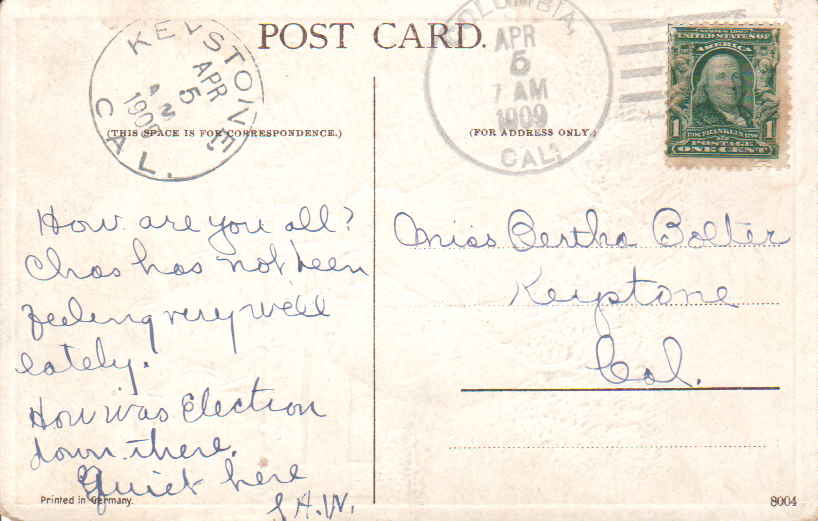 POST CARD.
KEYSTONE,
APR
5
1909
CAL.
COLUMBIA,
APR
5
7 AM
1909
CAL.
UNITED STATES OF
AMERICA
1 FRANKLIN 1
POSTAGE
ONE CENT
(THIS SPACE IS FOR CORRESPONDENCE.)
(FOR ADDRESS ONLY.)
How are you all?
Chas has not been
feeling very well
lately.
How was Election
down there.
Quiet here
S.H.W.
Miss Bertha Bolter
Keystone
Cal.
Printed in Germany.
8004